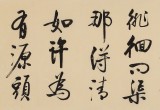 徘徊問渠
那得清
如許為
有源頭